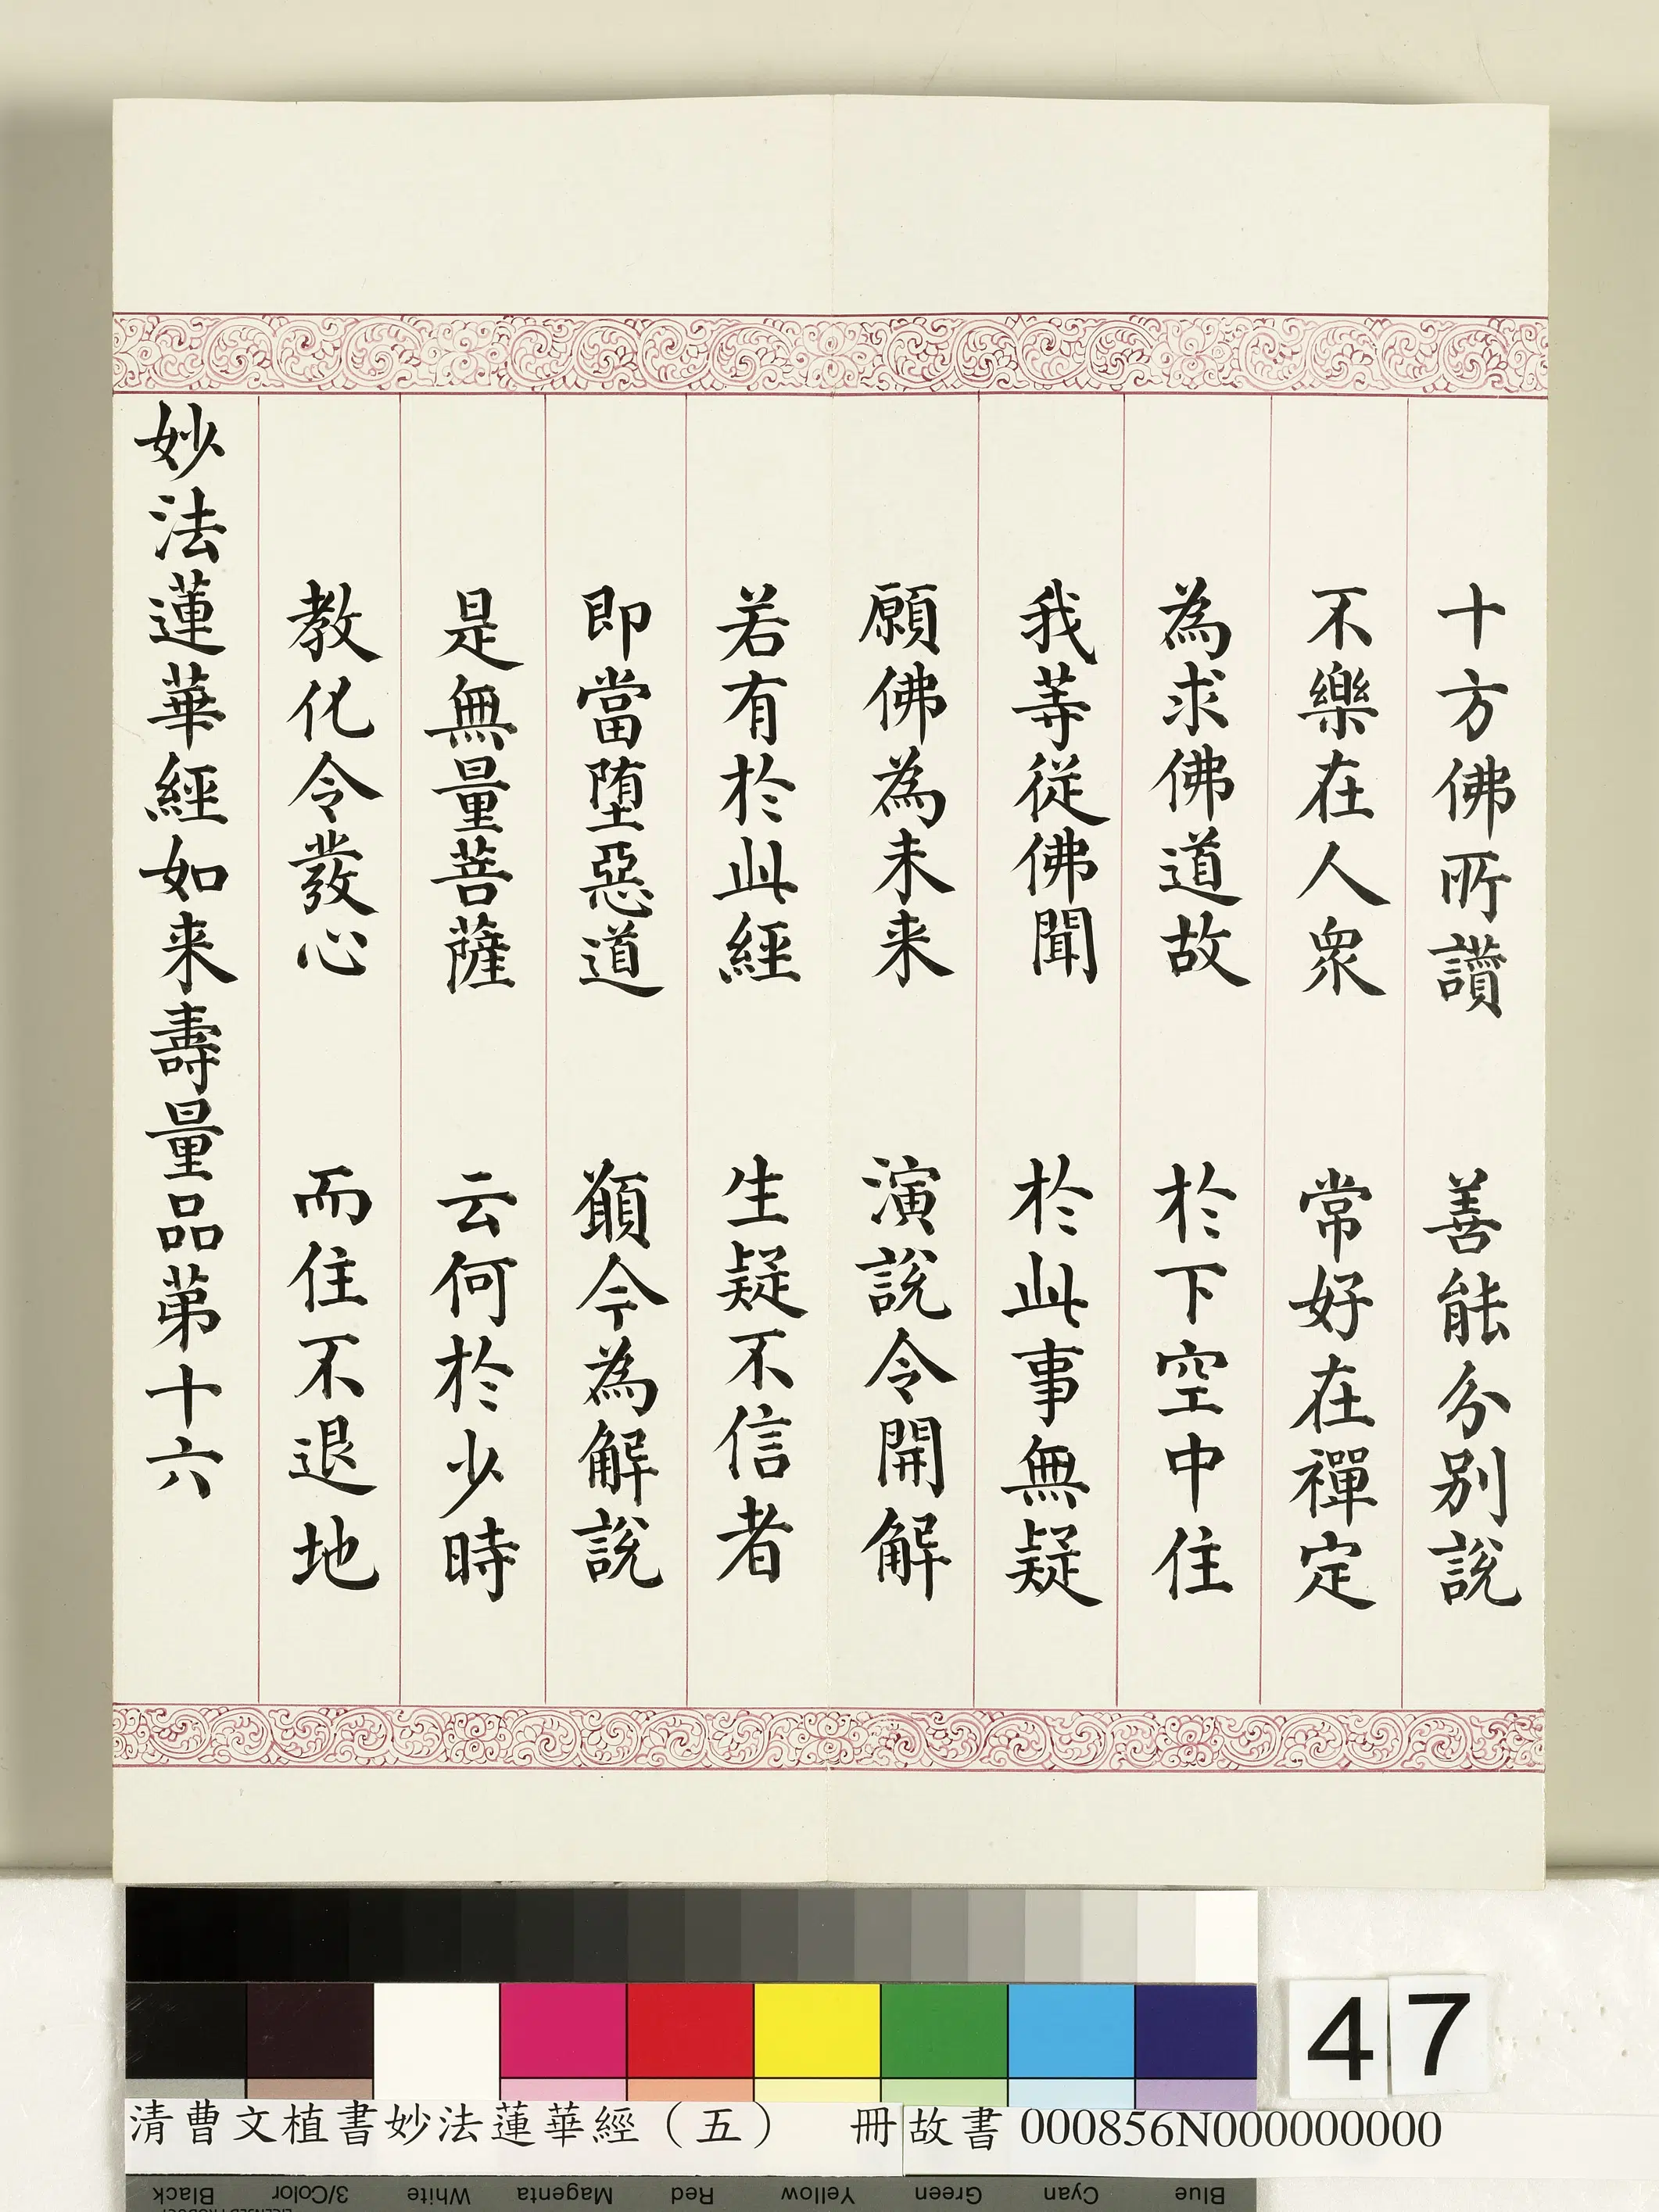 十方佛所讚　善能分別說
不樂在人眾　常好在禪定
為求佛道故　於下空中住
我等從佛聞　於此事無疑
願佛為未来　演說令開解
若有於此經　生疑不信者
即當堕惡道　願今為解說
是無量菩薩　云何於少時
教化令發心　而住不退地
妙法蓮華經如来壽量品第十六
47
清曹文植書妙法蓮華經（五）　冊故書 000856N000000000
Black 3/Color White Magenta Red Yellow Green Cyan Blue